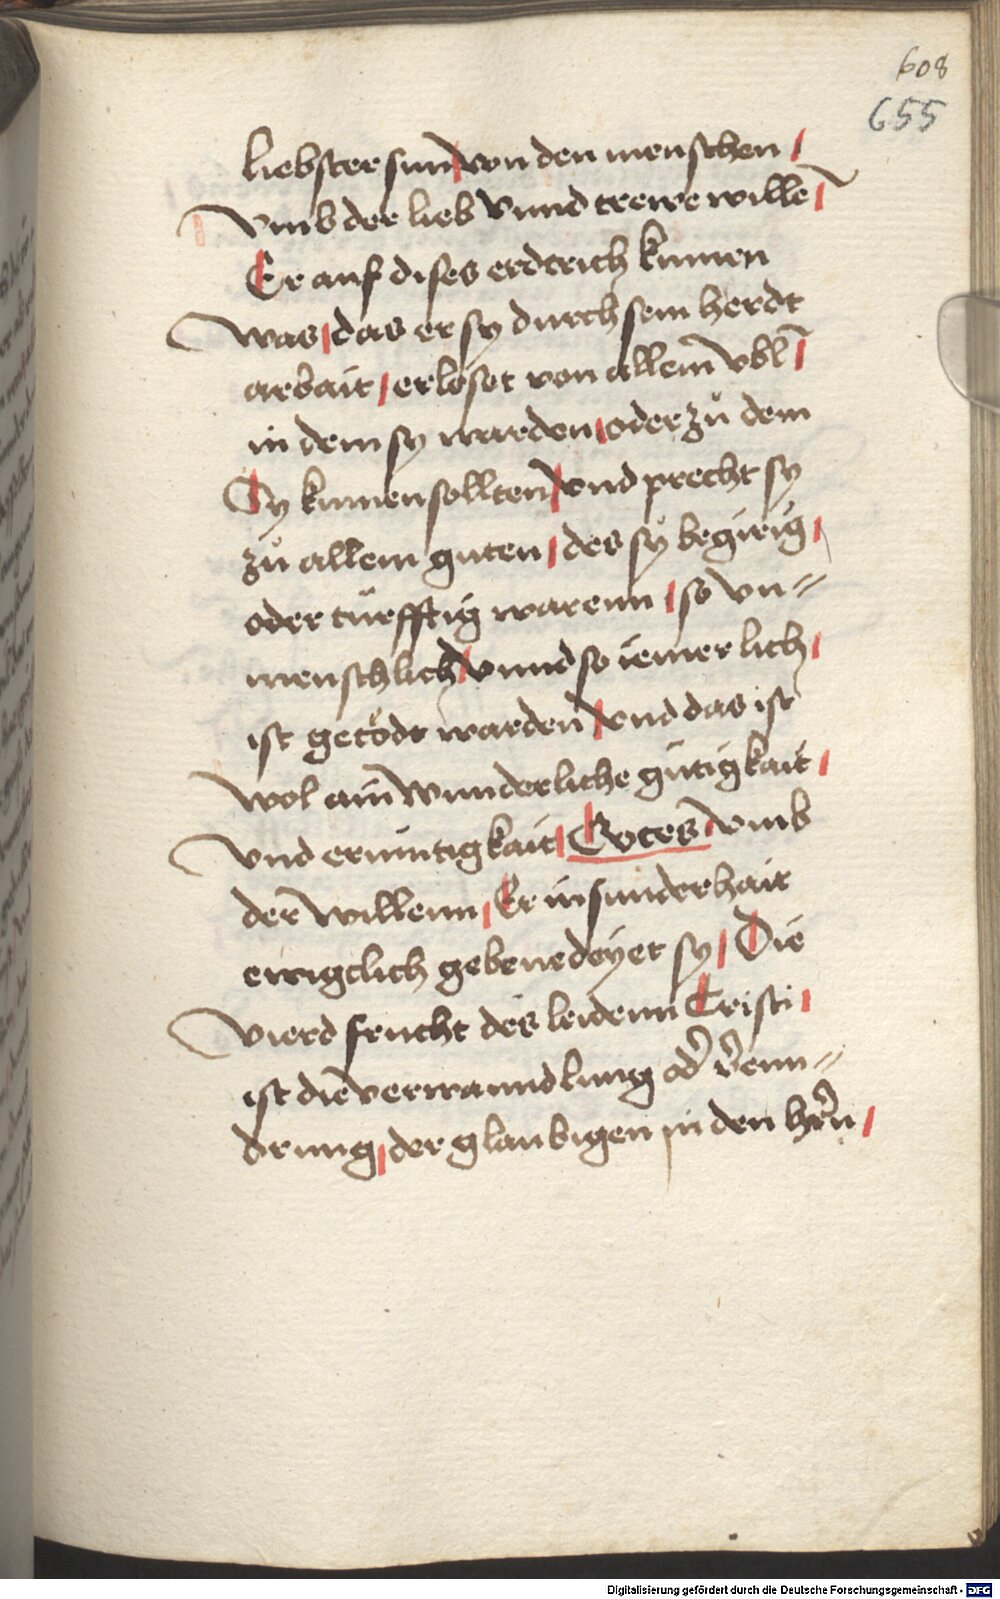 608
655
liebster sun / von den menschen /
Vmb der lieb Vnnd trewe wille /
Er auf dises erdtrich kumen
was / das er sy durch sein herdt
arbait / erlöset von allem vbl /
in dem sy warden / oder zů dem
Sy kumen sollten / vnd precht sy
zů allem guten / des sÿ begirig /
oder türfftig warenn / so vn=
menschlich / vnnd so iemerlich /
ist getödt warden / vnd das ist
wol ain wunderliche gütigkait /
Vnd ermutigkait / Gotes / vmb
der willenn / Er in sunderhait
ewigclich gebenedeyet sy / Die
Vierd frucht des leidenn Cristi /
ist die verwanndlung od' v'enn=
drung / der glaubigen in den hern /
Digitalisierung gefördert durch die Deutsche Forschungsgemeinschaft - DFG